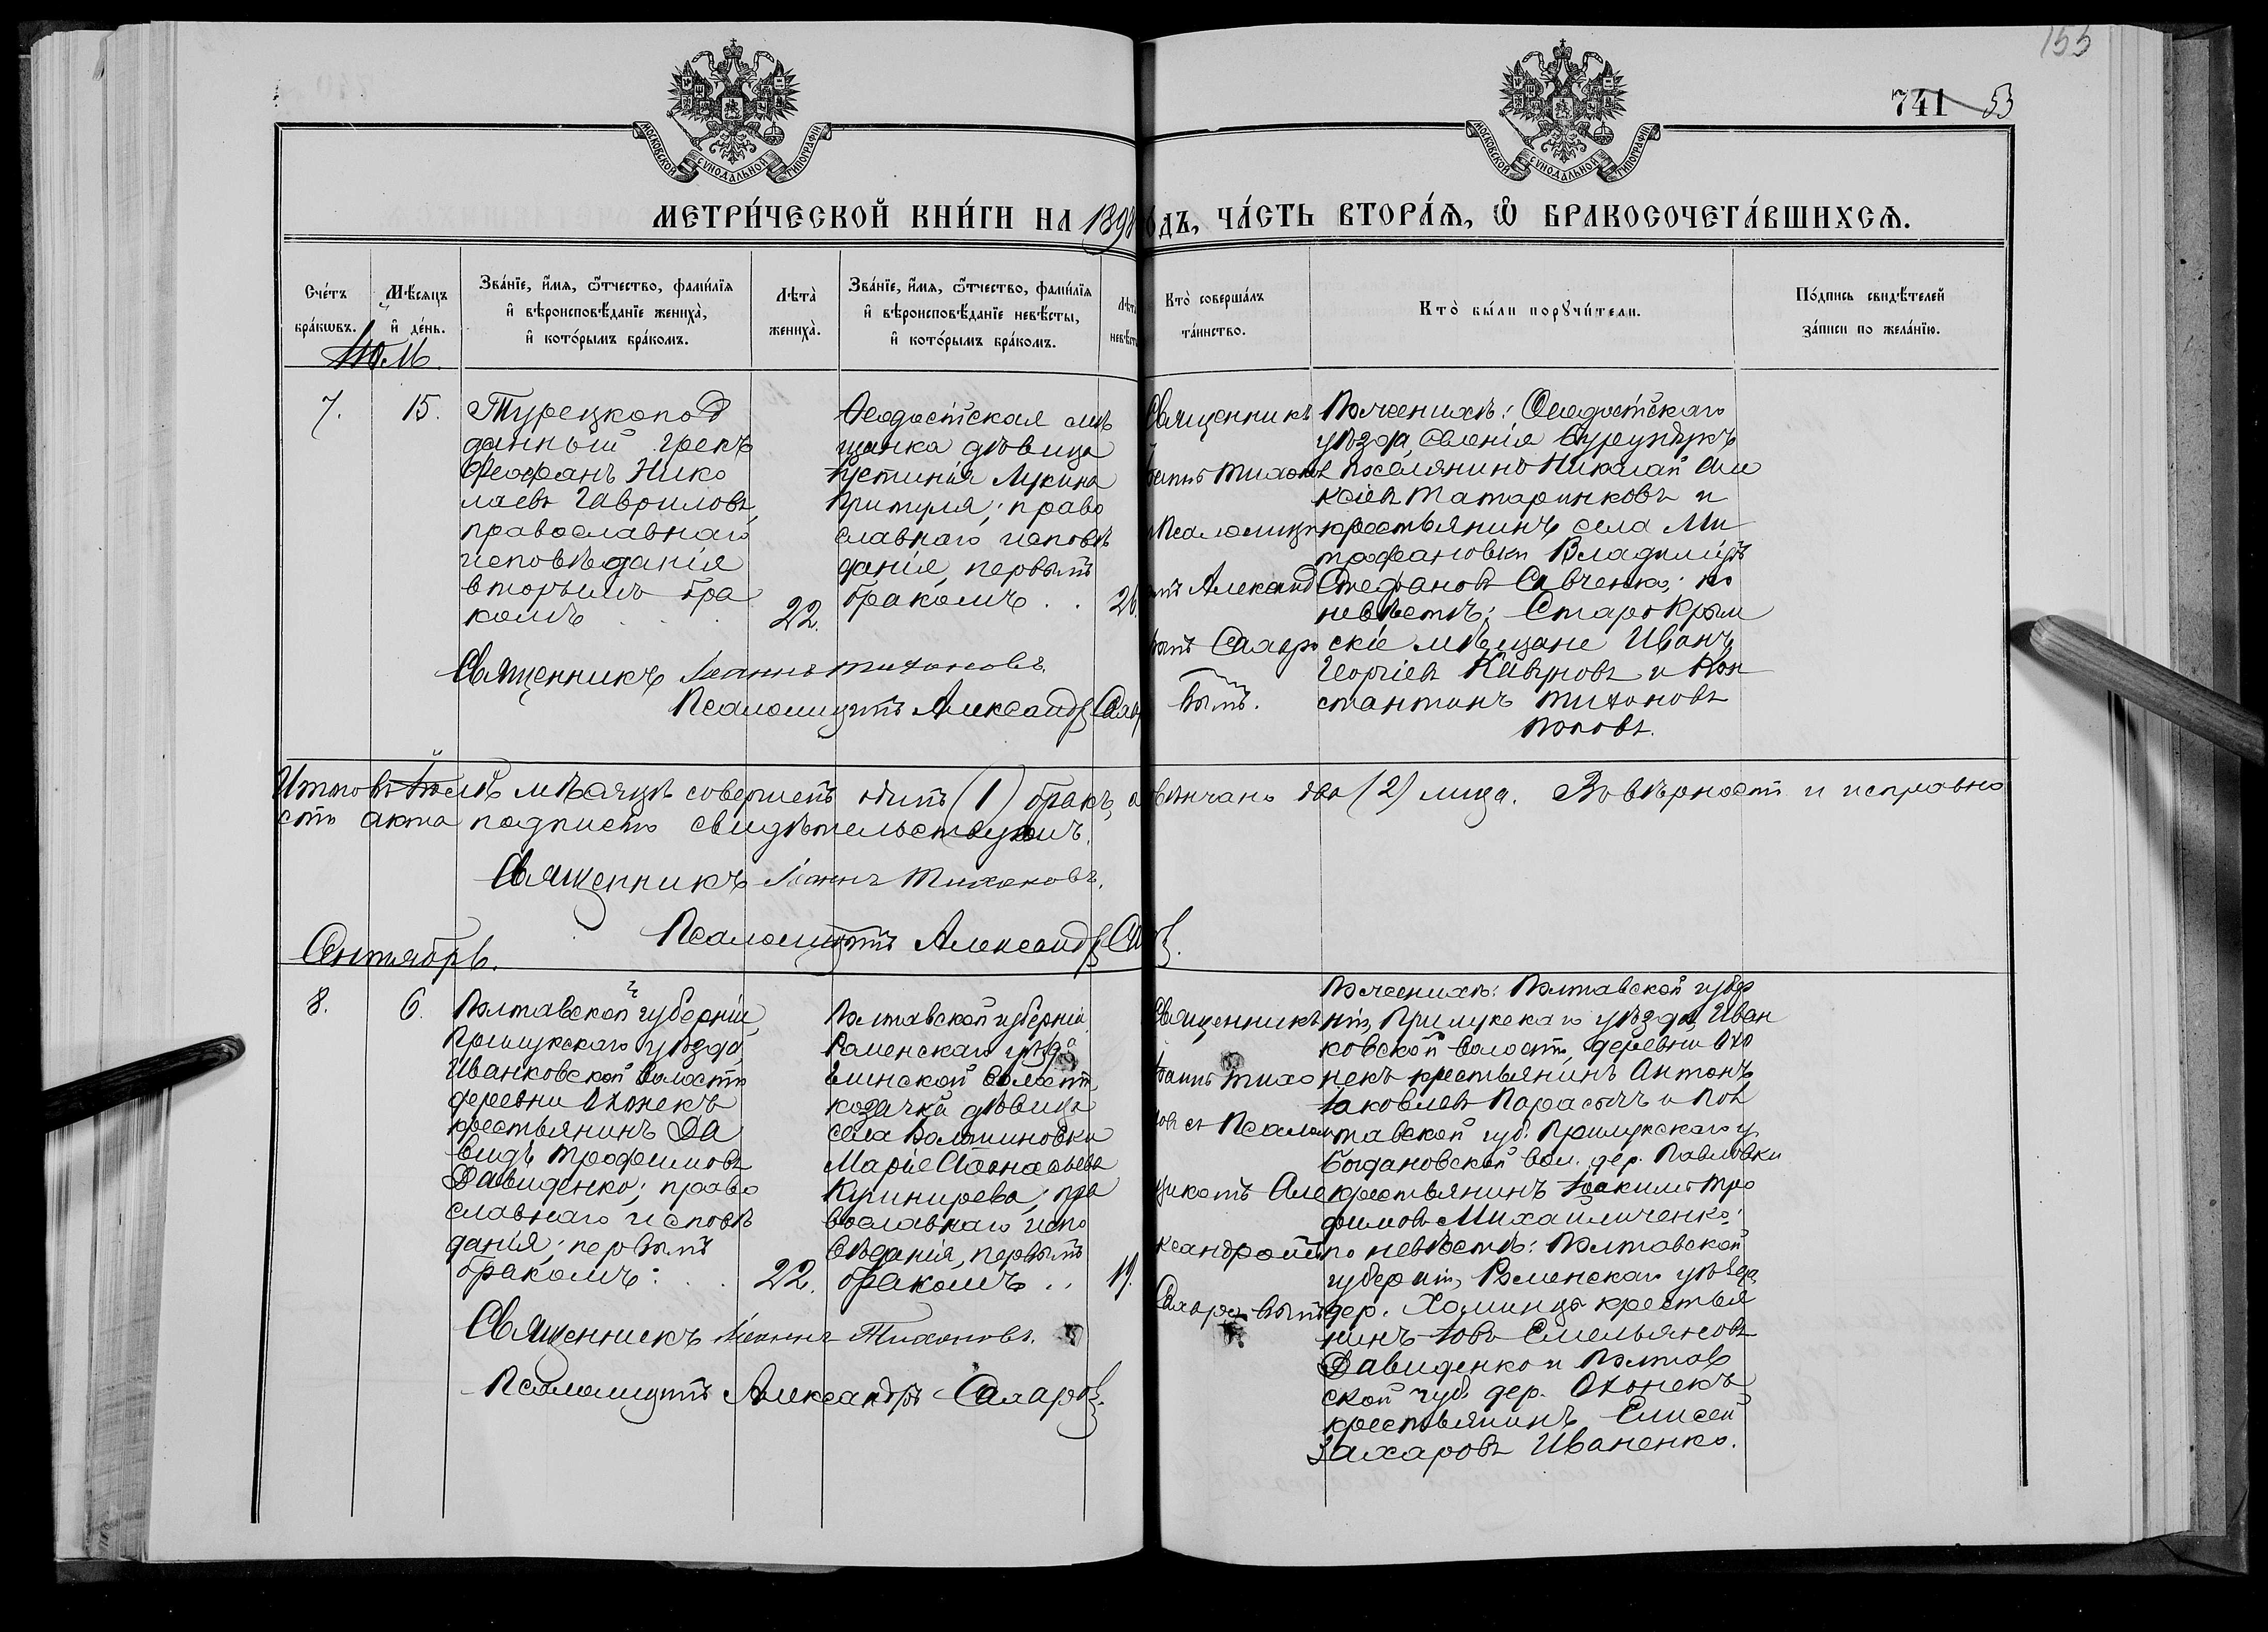 155
741 53
МОСКОВСКОЙ СѴНОДАЛЬНОЙ ТИПОГРАФІИ
МОСКОВСКОЙ СѴНОДАЛЬНОЙ ТИПОГРАФІИ
МЕТРИ́ЧЕСКОЙ КНИ́ГИ НА 1898
О́ДЪ, ЧА́СТЬ ВТОРА́Я, Ѽ БРАКОСОЧЕТА́ВШИХСЯ.
Сче́тъ
бра́кѡвъ.
Мѣ́сяцъ
и҆ де́нь.
Зва́нїе, и҆́мя, ѻ҆́тчество, фами́лїя
и҆ вѣроисповѣ́данїе жениха̀,
и҆ кото́рымъ бра́комъ.
Лѣта̀
жениха̀.
Зва́нїе, и҆́мя, ѻ҆́тчество, фами́лїя
и҆ вѣроисповѣ́данїе невѣ́сты,
и҆ кото́рымъ бра́комъ.
Лѣта̀
невѣст
Кто̀ соверша́лъ
та́инство.
Кто̀ бы́ли порꙋчи́тели.
По́дпись свидѣ́телей
за́писи по жела́нїю.
7.
15.
Турецкопод
данный грекъ
Феофанъ Нико
лаевъ Гавриловъ,
православнаго
исповѣданія
вторымъ бра
комъ
22.
Феодосійская мѣ
щанка дѣвица
Лукина
право
славнаго исповѣ
данія, первымъ
бракомъ . .
26.
Священникъ
Тихонов
Псаломщи
мъ Александ
вымъ.
По женихѣ: Феодосійскаго
уѣзда, селенія
поселянинъ Николай Але
ксіевъ Татаринковъ и
крестьянинъ села Ми
трофановки Владиміръ
Стефановъ Савченко; по
невѣстѣ: Старокрым
скіе мѣщане Иванъ
Георгіевъ и Кон
стантинъ Тихоновъ
Поповъ.
Священникъ Іоаннъ Тихоновъ.
Псаломщикъ Александръ
Итого въ мѣсяцѣ совершенъ одинъ (1) бракъ,
вѣнчано два (2) лица. Въ вѣрности и исправно
сти акта подписью свидѣтельствуемъ.
Священникъ Іоаннъ Тихоновъ.
Псаломщикъ Александръ
Сентябрь.
8.
6.
Полтавской губерніи,
Прилукскаго уѣзда
Иванковской волости
деревни Охонекъ
крестьянинъ Да
видъ Трофимовъ
Давиденко; право
славнаго исповѣ
данія; первымъ
бракомъ: . .
22.
Полтавской губерніи
Роменскаго уѣзда
Глинской волости
козачка дѣвица
села
Марія Афанасьева
пра
вославнаго испо
вѣданія, первымъ
бракомъ . .
19.
Священникъ
Іоаннъ Тихо
новъ съ Псалом
щикомъ Але
ксандромъ
По женихѣ: Полтавской губер
ніи, Прилукскаго уѣзда, Иван
ковской волости, деревни Охо
некъ крестьянинъ Антонъ
Іаковлевъ и Пол
тавской губ. Прилукскаго у.
Богдановской вол. дер. Павловки
крестьянинъ Іоакимъ Тро
фимовъ Михайличенко;
по невѣстѣ: Полтавской
губерніи, Роменскаго уѣзда,
дер. Хоминцы крестья
нинъ Іовъ Емельяновъ
Давиденко и Полтав
ской губ. дер. Охонекъ
крестьянинъ Елисей
Захаровъ Иваненко.
Священникъ Іоаннъ Тихоновъ.
Псаломщикъ Александръ